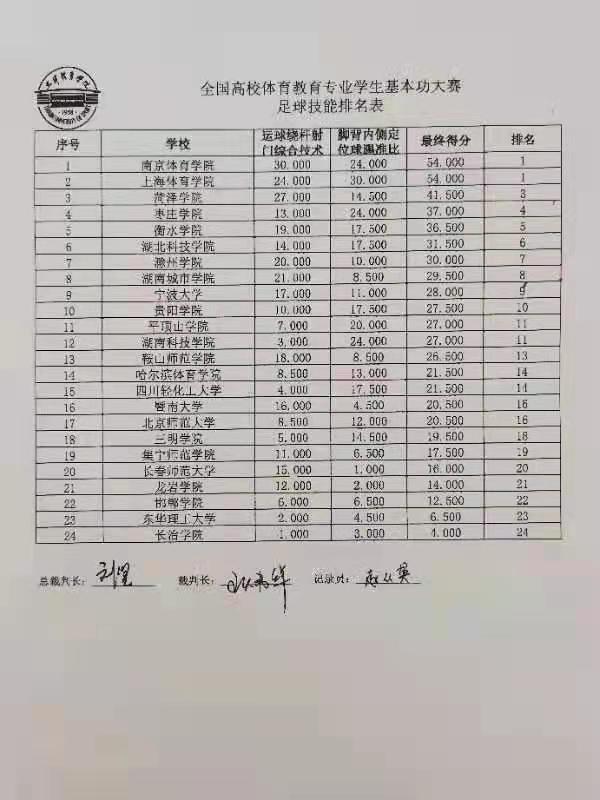 天津体育学院
1958
全国高校体育教育专业学生基本功大赛
足球技能排名表
序号 学校 运球绕杆射门综合技术 脚背内侧定位球踢准比 最终得分 排名
1 南京体育学院 30.000 24.000 54.000 1
2 上海体育学院 24.000 30.000 54.000 1
3 菏泽学院 27.000 14.500 41.500 3
4 枣庄学院 13.000 24.000 37.000 4
5 衡水学院 19.000 17.500 36.500 5
6 湖北科技学院 14.000 17.500 31.500 6
7 滁州学院 20.000 10.000 30.000 7
8 湖南城市学院 21.000 8.500 29.500 8
9 宁波大学 17.000 11.000 28.000 9
10 贵阳学院 10.000 17.500 27.500 10
11 平顶山学院 7.000 20.000 27.000 11
12 湖南科技学院 3.000 24.000 27.000 11
13 鞍山师范学院 18.000 8.500 26.500 13
14 哈尔滨体育学院 8.500 13.000 21.500 14
15 四川轻化工大学 4.000 17.500 21.500 14
16 暨南大学 16.000 4.500 20.500 16
17 北京师范大学 8.500 12.000 20.500 16
18 三明学院 5.000 14.500 19.500 18
19 集宁师范学院 11.000 6.500 17.500 19
20 长春师范大学 15.000 1.000 16.000 20
21 龙岩学院 12.000 2.000 14.000 21
22 邯郸学院 6.000 6.500 12.500 22
23 东华理工大学 2.000 4.500 6.500 23
24 长治学院 1.000 3.000 4.000 24
总裁判长: 裁判长: 记录员: